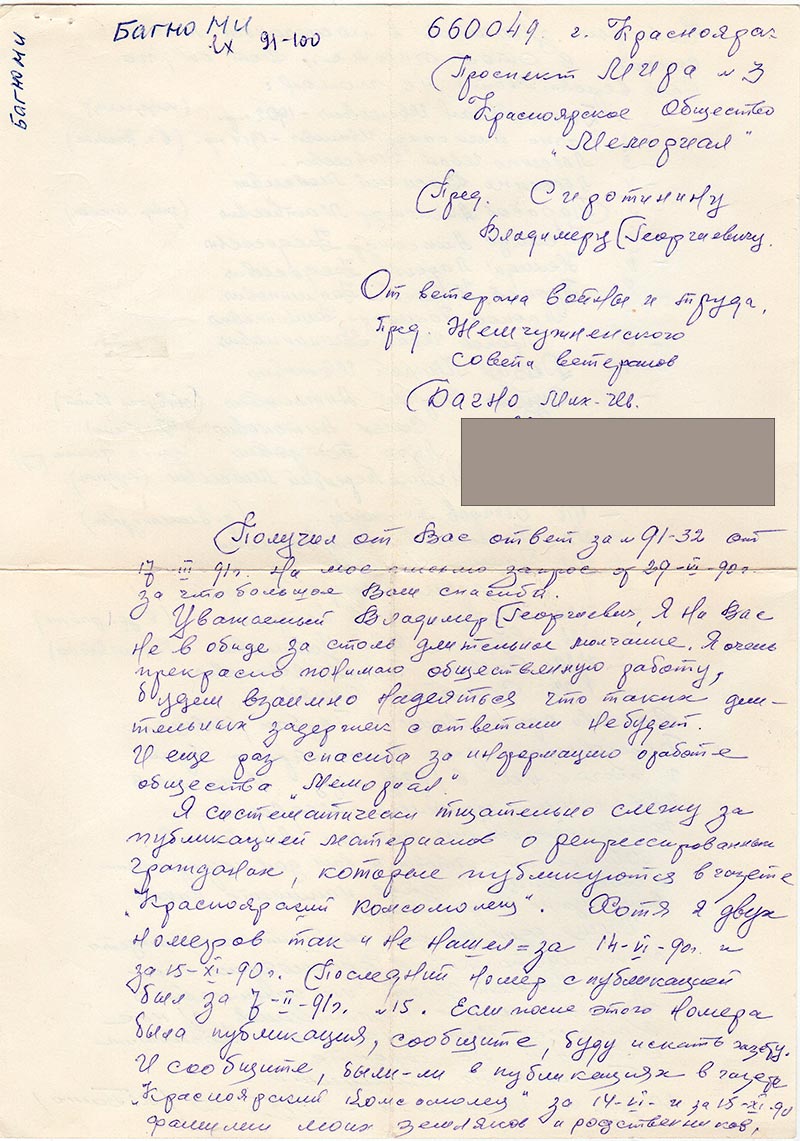 Багно МИ
Багно МИ
вх 91-100
660049. г. Красноярск
Проспект Мира № 3
Красноярское Общество
„Мемориал"
Пред. Сиротинину
Владимеру Георгиевичу.
От ветерана войны и труда,
Пред. Жемчужненского
совета ветеранов
Багно Мих-Ив.
Получил от Вас ответ за № 91-32 от
17-III-91г. На мое письмо запрос от 29-VI-90г.
за что большая Вам спасиба.
Уважаемый Владимер Георгиевич, Я на Вас
не в обиде за столь длительное молчание. Я очень
прекрасно понимаю общественную работу,
будем взаимно надеяться что таких дли-
тельных задержек с ответами не будет.
И еще раз спасиба за информацию о работе
общества „Мемориал".
Я систематически тщательно слежу за
публикацией материалов о репрессированных
гражданах, которые публикуются в газете
„Красноярский комсомолец". Хотя я двух
номеров так и не нашел = за 14-VI-90г. и
за 15-XI-90г. Последний номер с публикацией
был за 7-II-91г. №15. Если после этого номера
была публикация, сообщите, буду искать газету.
И сообщите, были-ли в публикациях в газете
„Красноярский Комсомолец" за 14-VI- и за 15-XI-90
фамилии моих земляков и родственников.